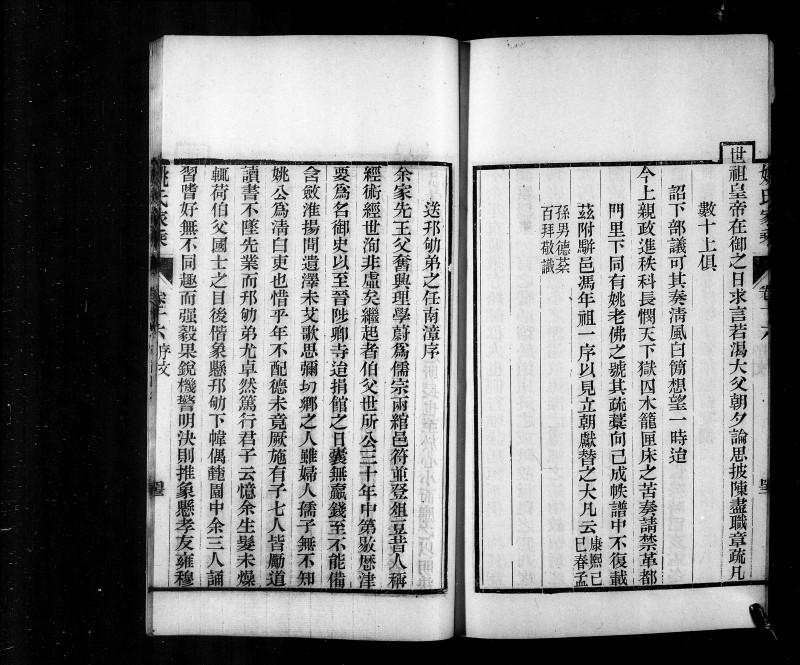 世祖皇帝在御之日求言若渴大父朝夕論思披陳盡職章疏凡
數十上俱
詔下部議可其奏淸風白簡想望一時迨
今上親政進秩科長憫天下獄囚木籠匣床之苦奏請禁革都
門里下同有姚老佛之號其疏藁向已成帙譜中不復載
茲附駢邑馮年祖一序以見立朝獻替之大凡云康熙己
巳春孟
孫男德棻
百拜敬識
姚氏家乘
卷十六
序文
送邘劬弟之任南漳序
余家先王父奮興理學蔚爲儒宗兩綰邑符並登俎豆昔人稱
經術經世洵非虛矣繼起者伯父世所公三十年中第敭歷津
要爲名御史以至晉陟卿寺迨捐館之日囊無羸錢至不能備
含斂淮揚間遺澤未艾歌思彌切鄉之人雖婦人孺子無不知
姚公爲淸白吏也惜乎年不配德未竟厥施有子七人皆勵道
讀書不墜先業而邘劬弟尤卓然篤行君子云憶余生髮未燥
輒荷伯父國士之目後偕象懸邘劬下幃偶園中余三人誦
習嗜好無不同趣而强毅果銳機警明決則推象懸孝友雍穆
姚氏家乘
卷十六
序文